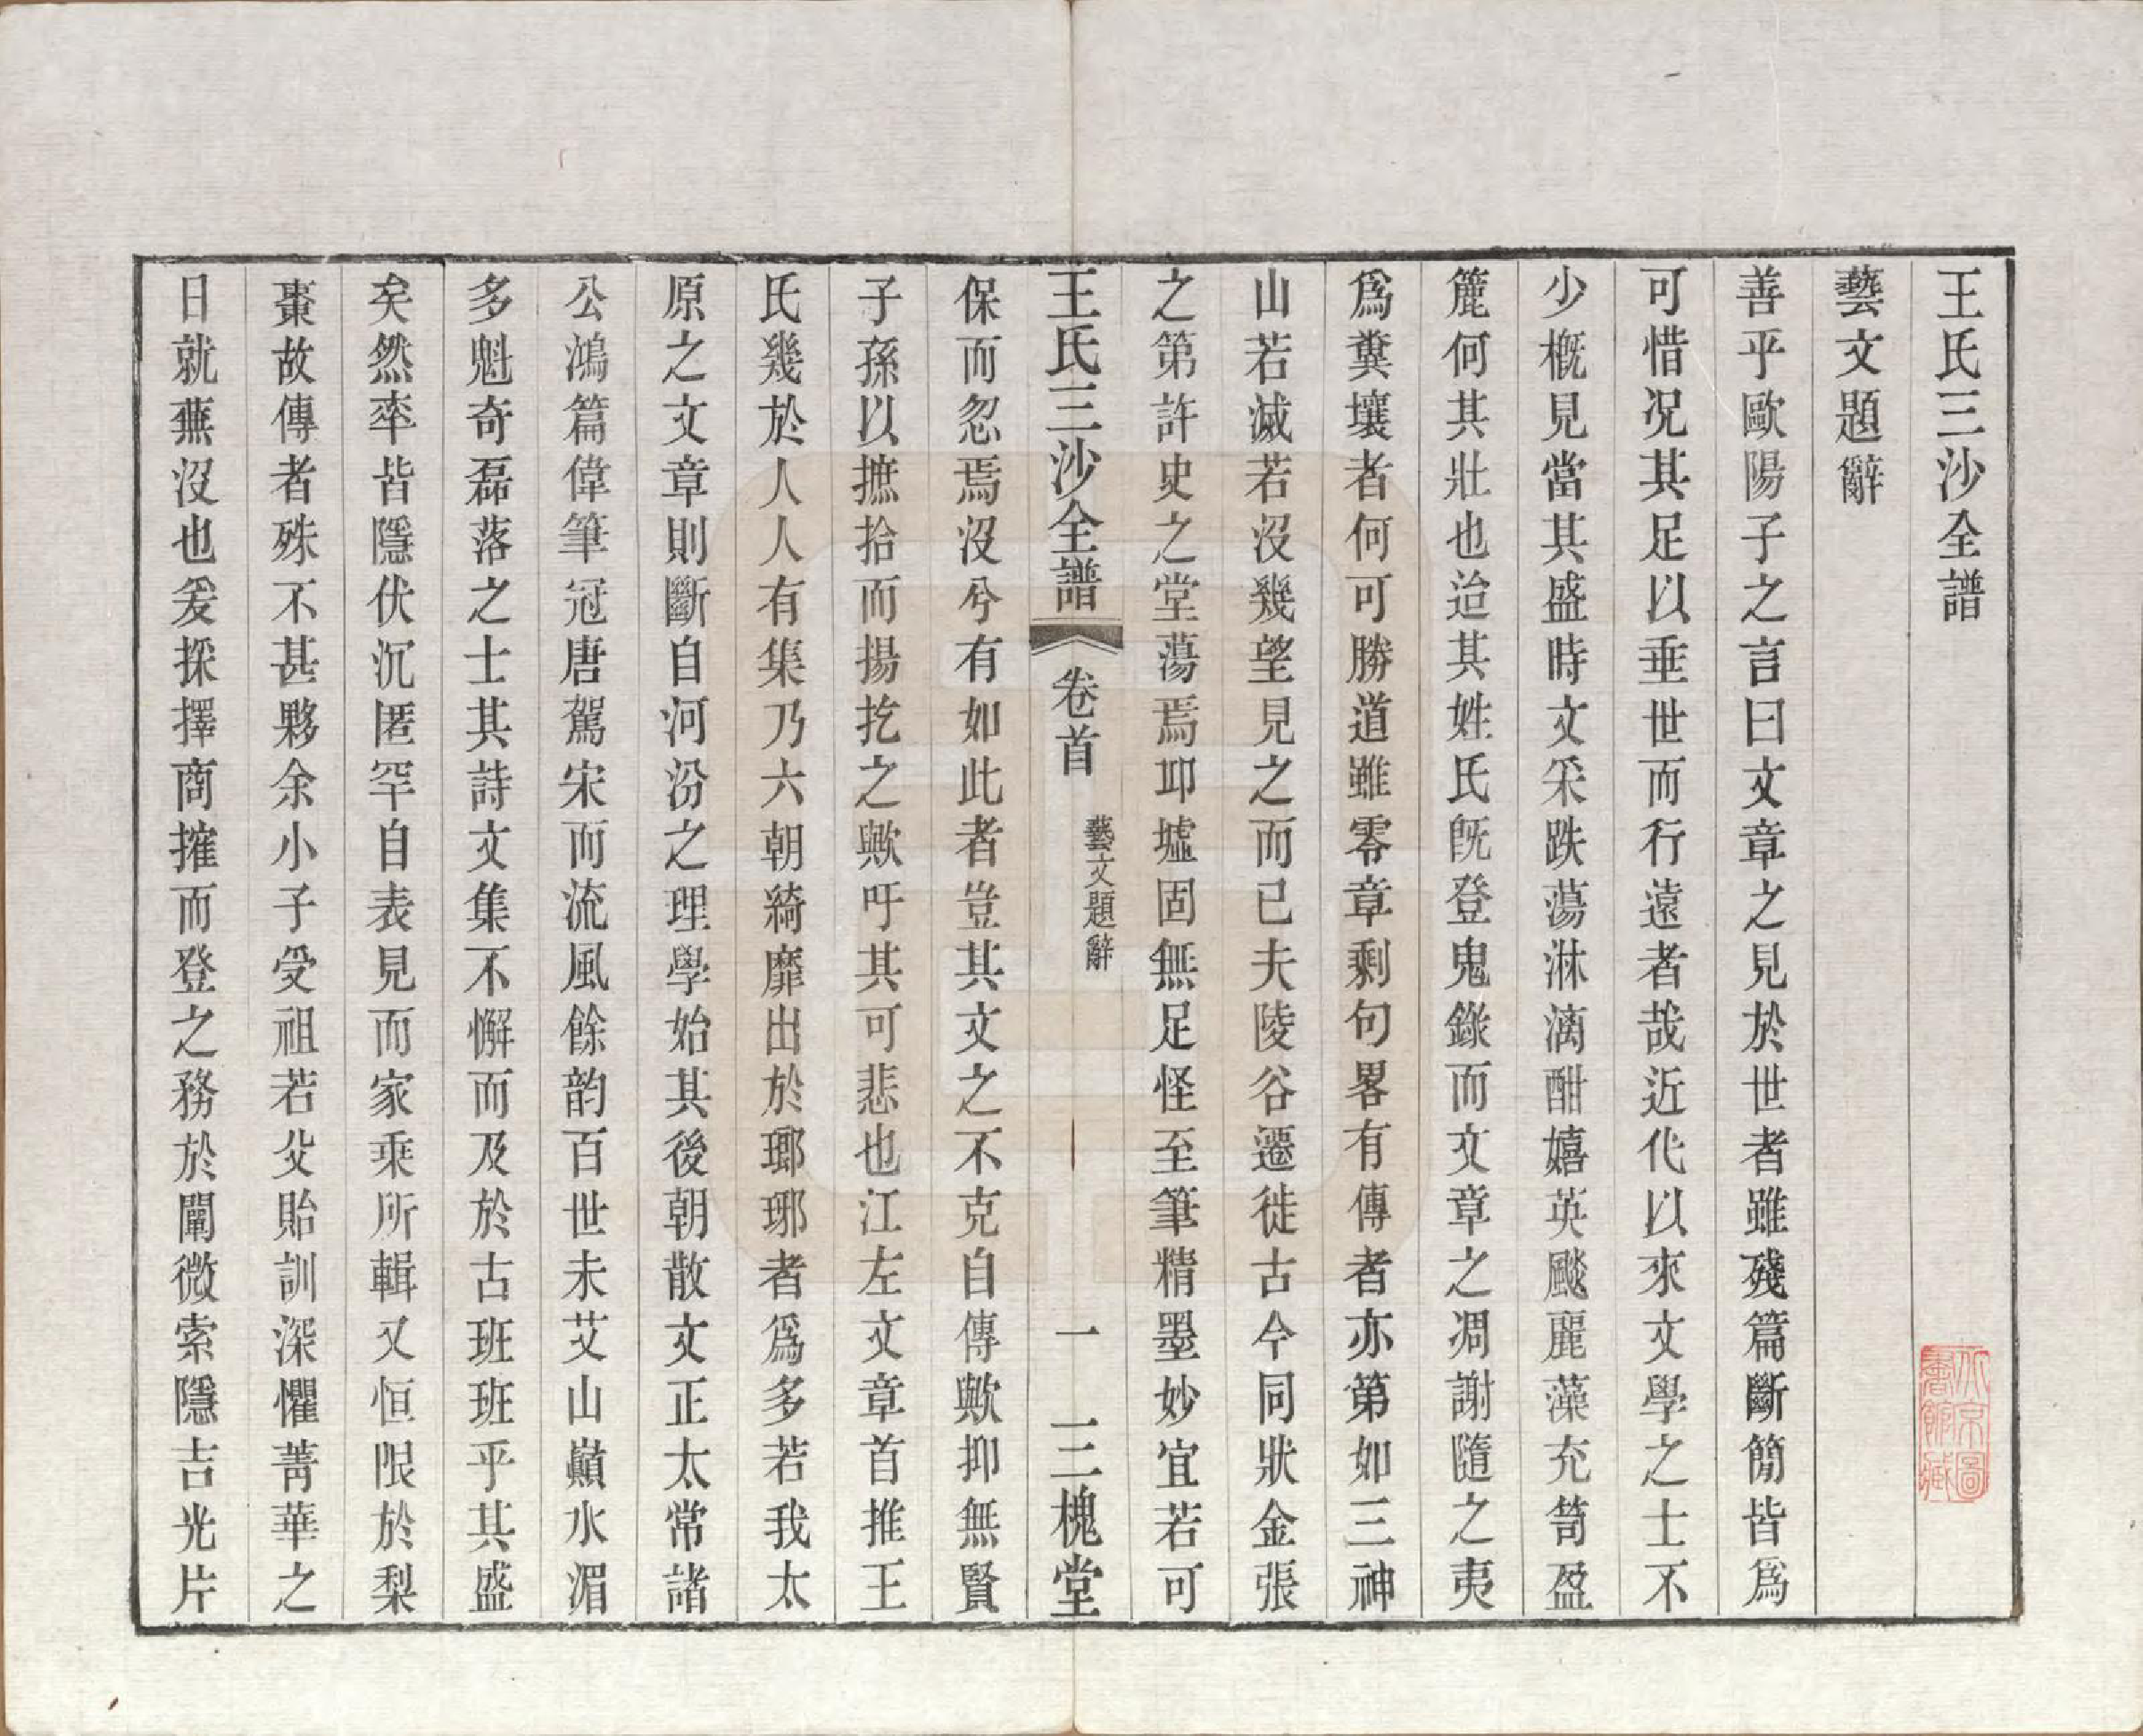 王氏三沙全譜
藝文題辭
善乎歐陽子之言曰文章之見於世者雖殘篇斷簡皆爲
可惜况其足以垂世而行遠者哉近代以來文學之士不
少概見當其盛時文采跌蕩淋漓酣嬉英颷麗藻充笥盈
簏何其壯也迨其姓氏旣登鬼錄而文章之凋謝隨之夷
爲糞壤者何可勝道雖零章剩句畧有傳者亦第如三神
山若滅若沒幾望見之而已夫陵谷遷徙古今同狀金張
之第許史之堂蕩焉邱墟固無足怪至筆精墨妙宜若可
王氏三沙全譜 卷首 藝文題辭 一 三槐堂
保而忽焉沒兮有如此者豈其文之不克自傳歟抑無賢
子孫以摭拾而揚扢之歟吁其可悲也江左文章首推王
氏幾於人人有集乃六朝綺靡出於瑯琊者爲多若我太
原之文章則斷自河汾之理學始其後朝散文正太常諸
公鴻篇偉筆冠唐駕宋而流風餘韵百世未艾山巔水湄
多魁奇磊落之士其詩文集不懈而及於古班班乎其盛
矣然率皆隱伏沉匿罕自表見而家乘所輯又恒限於梨
棗故傳者殊不甚夥余小子受祖若父貽訓深懼菁華之
日就蕪沒也爰採擇商搉而登之務於闡微索隱吉光片
北京圖
書館藏